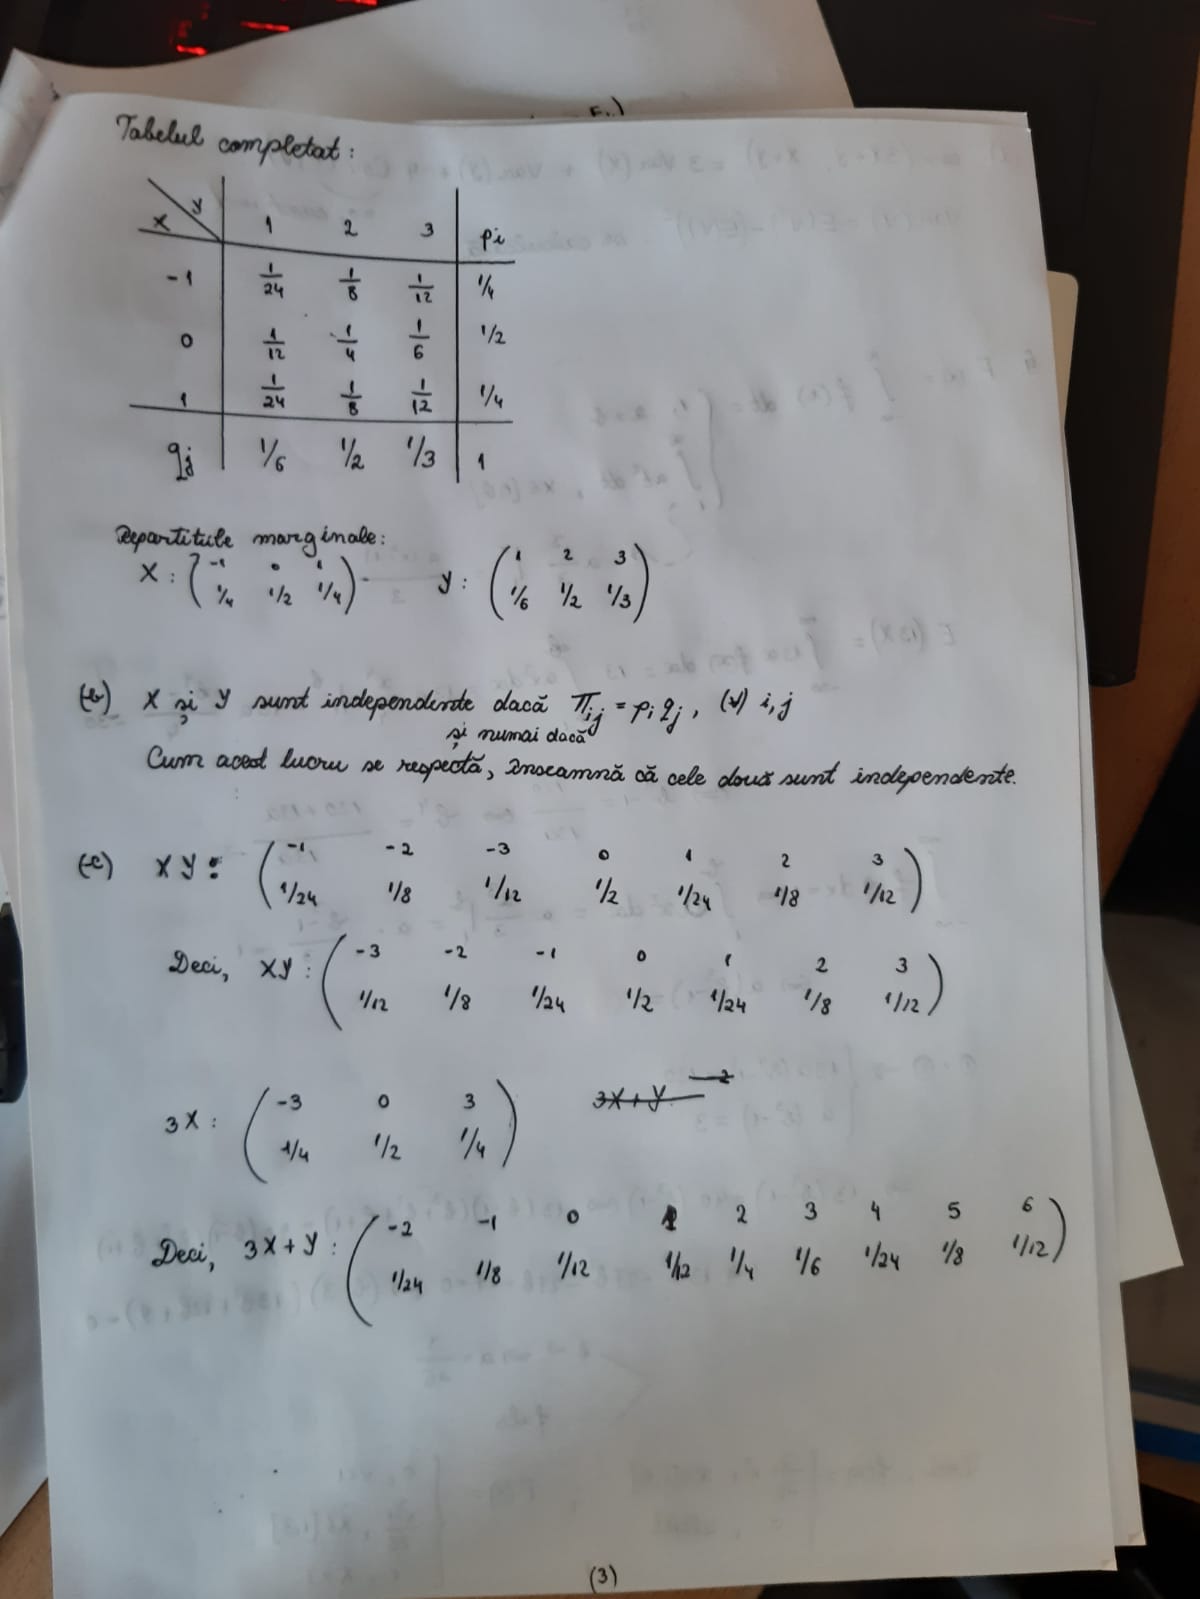 Tabelul completat:
X \ Y | 1 | 2 | 3 | pi
-1 | 1/24 | 1/8 | 1/12 | 1/4
0 | 1/12 | 1/4 | 1/6 | 1/2
1 | 1/24 | 1/8 | 1/12 | 1/4
qj | 1/6 | 1/2 | 1/3 | 1
Repartitiile marginale:
X : ( -1 0 1 ) Y : ( 1 2 3 )
( 1/4 1/2 1/4 ) ( 1/6 1/2 1/3 )
(b) X și Y sunt independente dacă πij = pi qj, (∀) i,j
și numai dacă
Cum acest lucru se respectă, înseamnă că cele două sunt independente.
(c) XY : ( -1 -2 -3 0 1 2 3 )
( 1/24 1/8 1/12 1/2 1/24 1/8 1/12 )
Deci, XY : ( -3 -2 -1 0 1 2 3 )
( 1/12 1/8 1/24 1/2 1/24 1/8 1/12 )
3X : ( -3 0 3 ) 3X+Y
( 1/4 1/2 1/4 )
Deci, 3X+Y : ( -2 -1 0 1 2 3 4 5 6 )
( 1/24 1/8 1/12 1/12 1/4 1/6 1/24 1/8 1/12 )
(3)